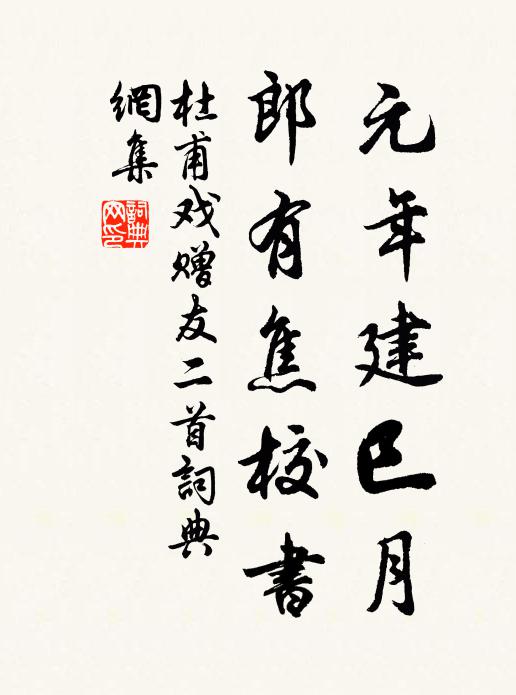 元年建巳月
郎有焦校書
杜甫戏赠友二首詞典
網集
詞典
网印